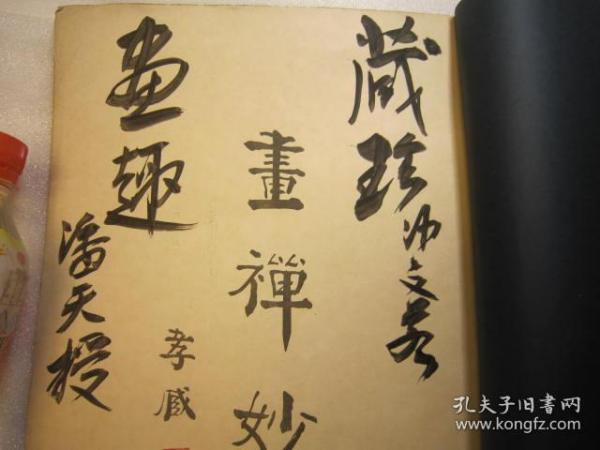 藏珍
文若
畫禪妙
孝臧
畫趣
潘天授
孔夫子旧书网
www.kongfz.com